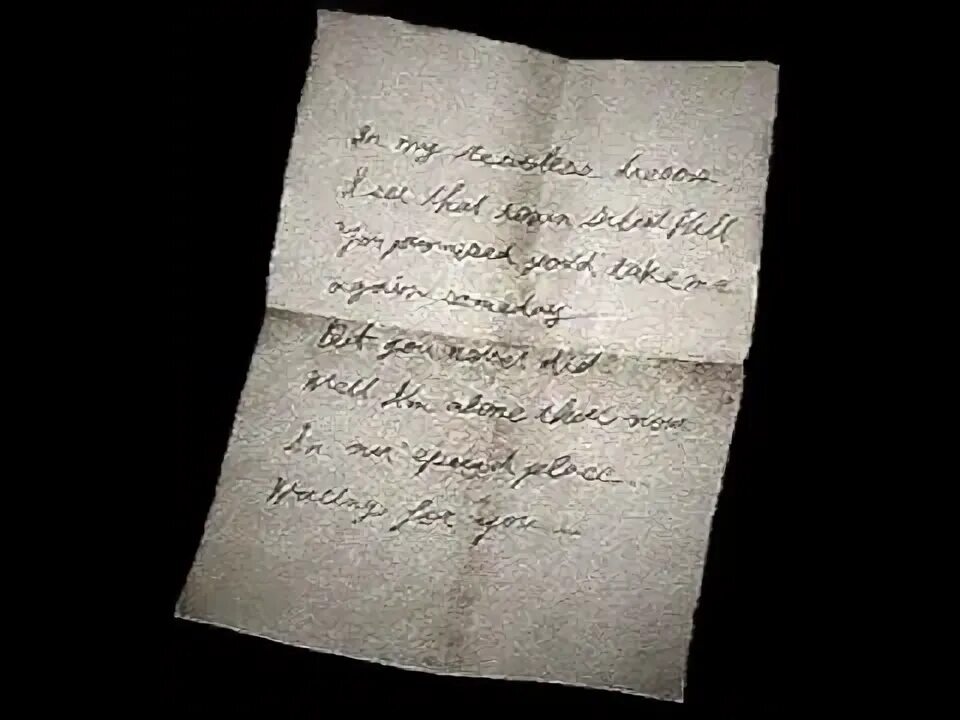 In my restless dreams,
I see that town Silent Hill
You promised you'd take me
again someday
But you never did.
Well I'm alone there now
In our special place
Waiting for you...